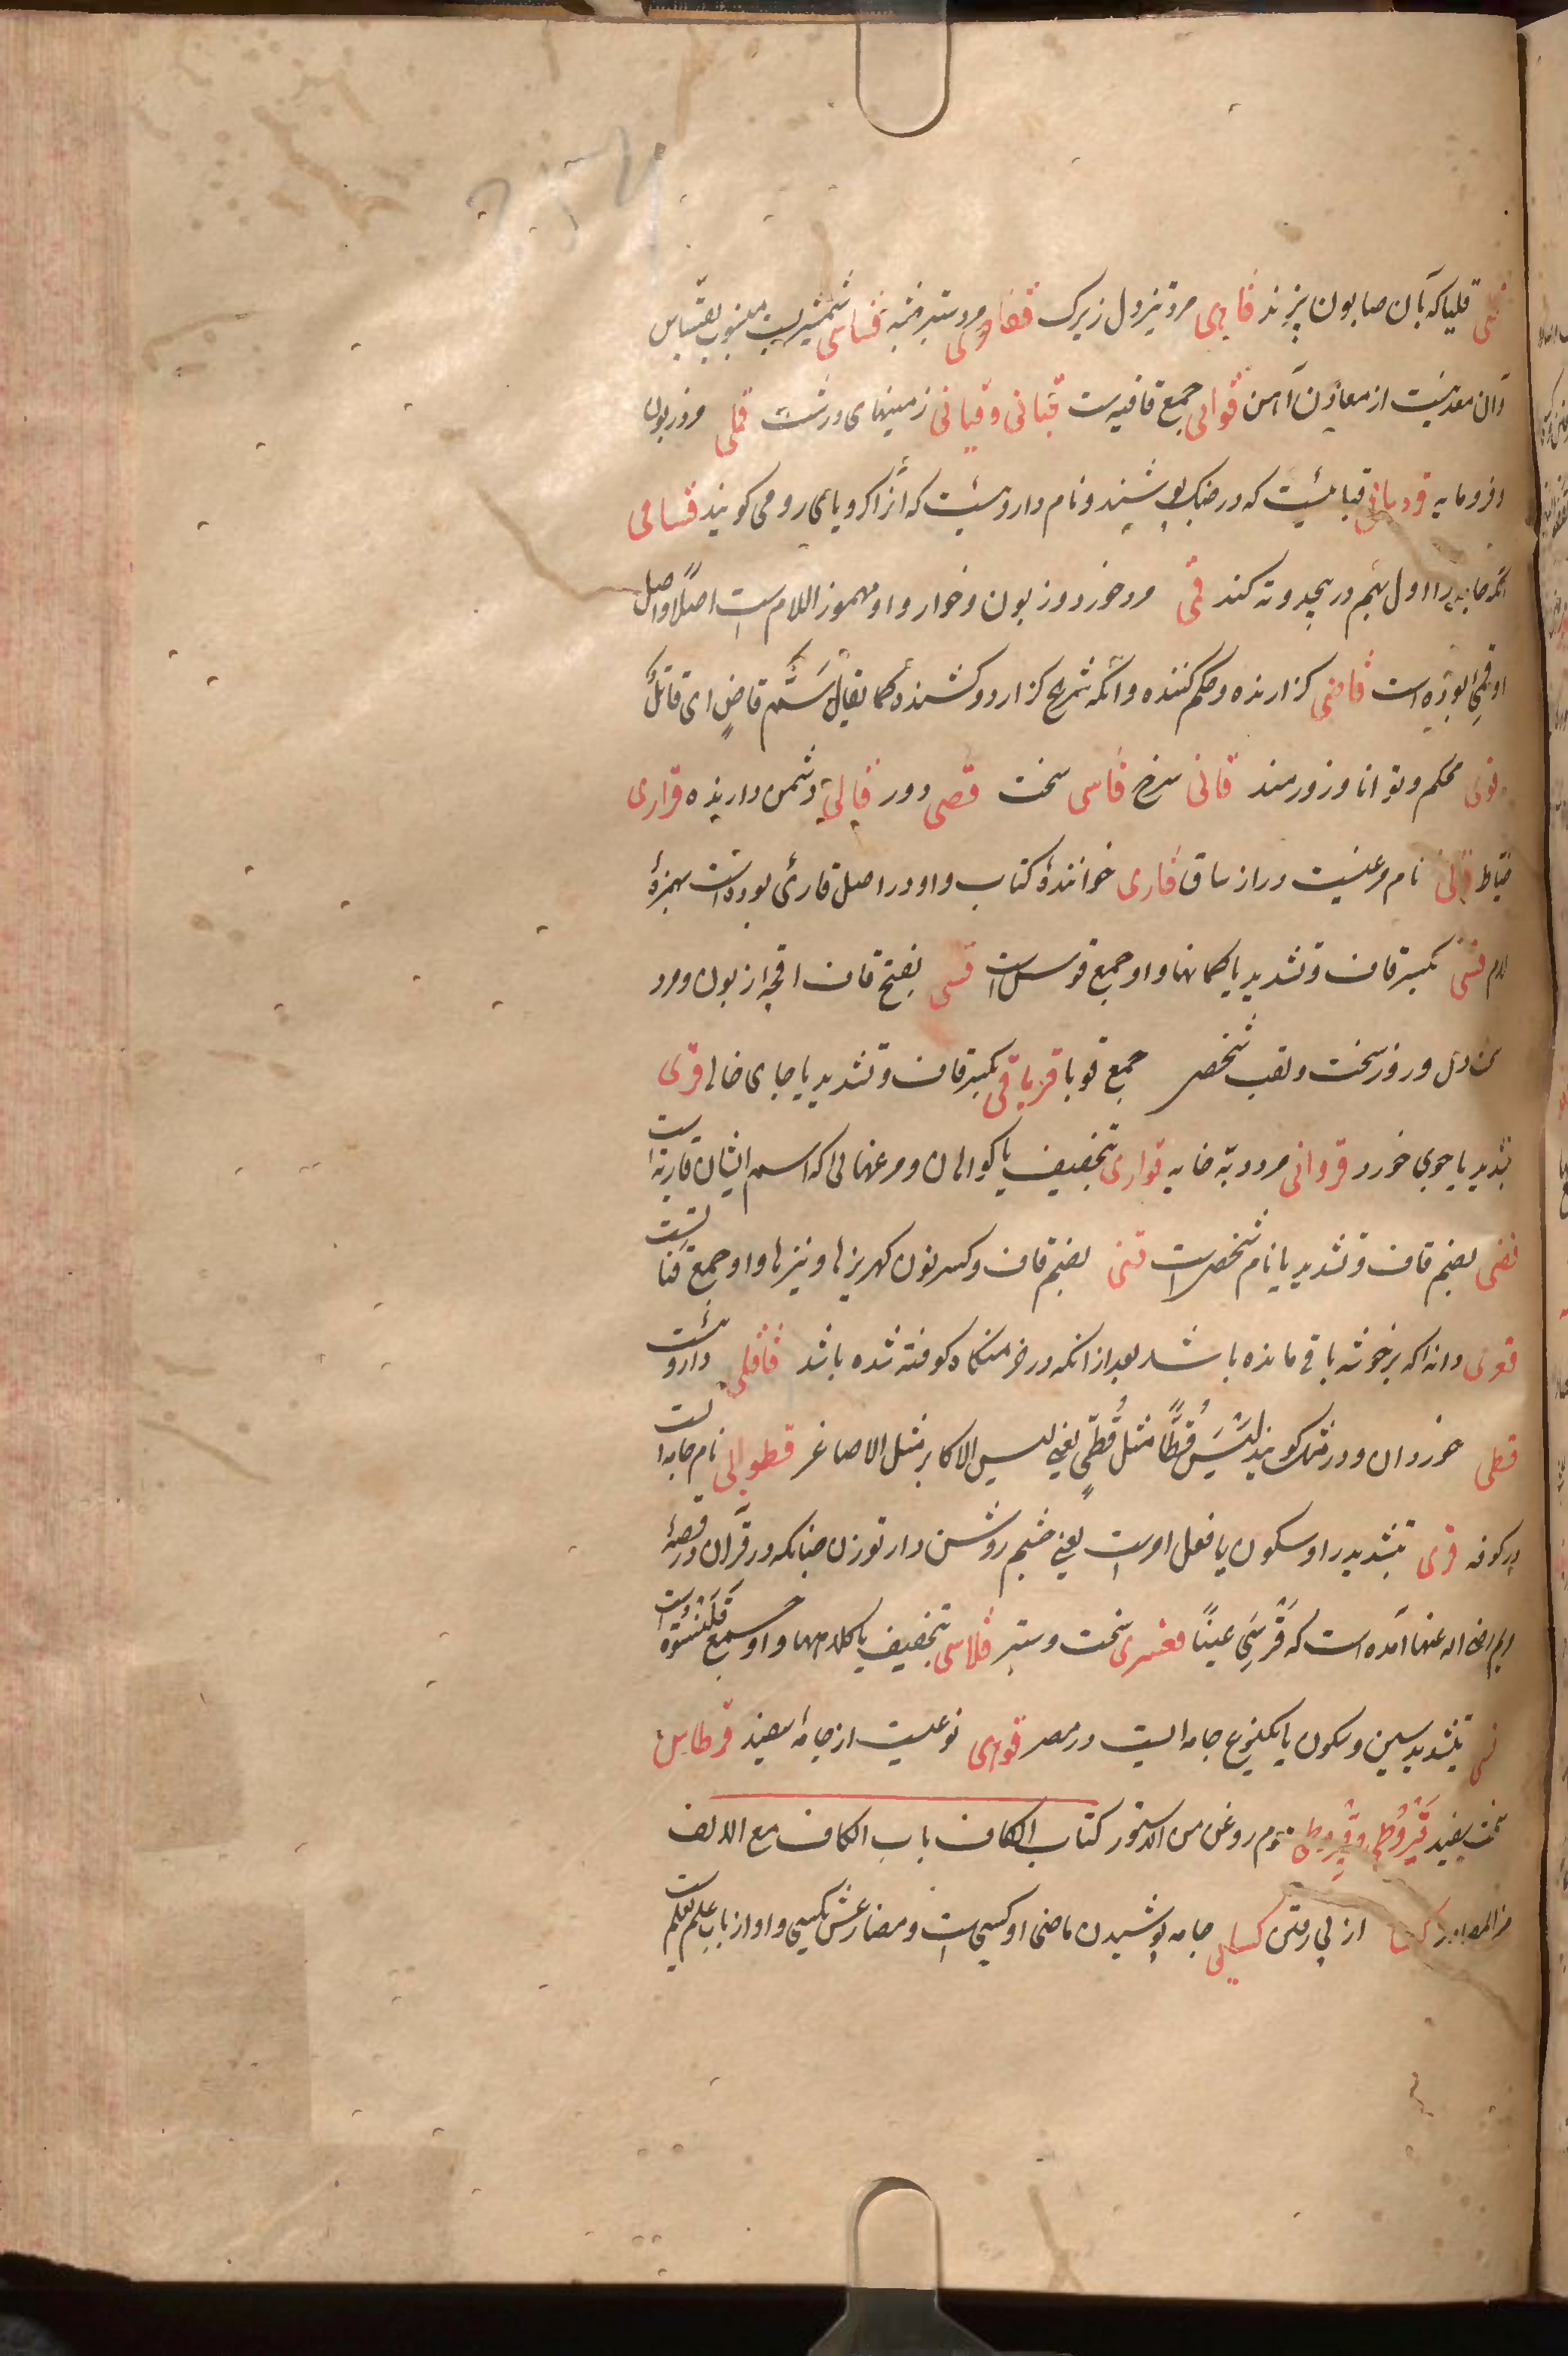 قلی قلیا که بآن صابون پزند قاهی مرد تیز دل زیرک قفادری مرد ستبر فنبه قساسی شمشیریست منسوب بقساس
وآن معدنیست از معادن آهن قوافی جمع قافیه است قیانی و قیانی زمینهای درشت قملی مرد زبون
و فرومایه قردمانی قبائیست که در جنک پوشند و نام داروئیست که آنرا کرویای رومی کویند قسامی
آنکه جامه را اول بهم در پیچد و ته کند قمی مرد خورد و زبون و خوار و او مهموز اللام است اصلا و اصل
او قمئ بوده است قاضی کزارنده و حکم کننده و آنکه شرح کزارد و کشنده کما یقال سم قاض ای قاتل
قوی محکم و توانا و زورمند قانی سرخ قاسی سخت قصی دور قالی دشمن دارنده قراری
خیاط نام مرغیست دراز ساق قاری خوانندهٔ کتاب و او در اصل قارئ بوده است بهمزهٔ
لام قسی بکسر قاف و تشدید یا کمانها و او جمع قوس است قسی بفتح قاف اقچه از بون و مرد
دل و روز سخت و لقب شخصی جمع قوبا قربا قی بکسر قاف و تشدید یا جای خالی قری
بتشدید یا جوی خورد قروانی مرد دبه خایه قواری بتخفیف یا کواهان و مرغهائی که اسم ایشان قاریه است
قضی بضم قاف و تشدید یا نام شخصیست قنی بضم قاف و کسر نون کهریزها و نیزها و او جمع قناتست
قعری دانه که بر خوشه باقی مانده باشد بعد از آنکه در خرمنکاه کوفته شده باشد قاقلی داروئیست
قطی خوردان و در مثل کویند لیس قطا مثل قطی یعنی لیس الاکابر مثل الاصاغر قطوانی نام جامه است
در کوفه قری بتشدید را و سکون یا فعل امر است یعنی چشم روشن دار تو زن چنانکه در قرآن در قصهٔ
مریم رضی الله عنها آمده است که قری عینا قعسری سخت و ستبر قلاسی بتخفیف یا کلاهها و او جمع قلنسوة است
قسی بتشدید سین و سکون یا یکنوع جامه ایست در مصر قوهی نوعیست از جامهٔ سفید قرطاسی
سخت سفید قیروطی و قیروطی موم روغن من الدستور کتاب الکاف باب الکاف مع الالف
من المصادر از پی رفتن کسایی جامه پوشیدن ماضی او کسی است و مضارعش یکسی و او از باب علم یعلم است